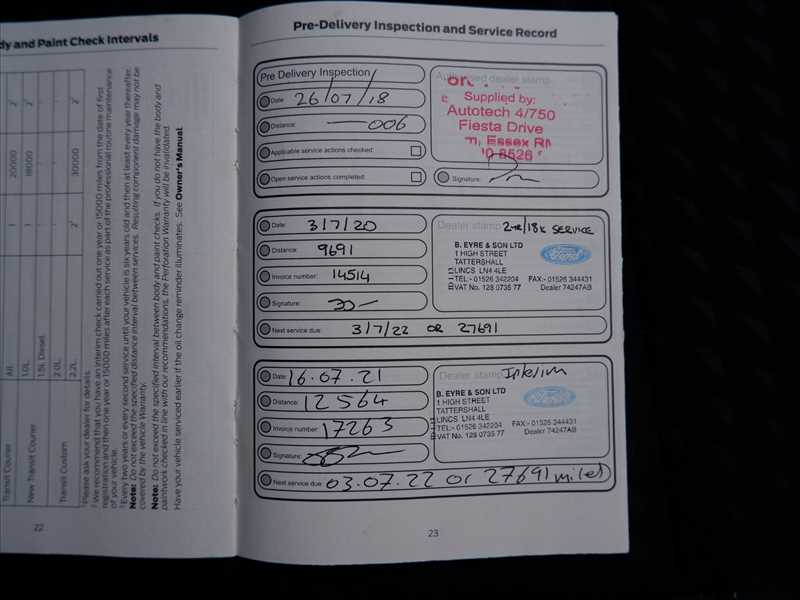 dy and Paint Check Intervals
Transit Courier
All
1
20000
2¹
New Transit Courier
1.0L
1
18000
2¹
1.5L Diesel
Transit Custom
2.0L
2.2L
2¹
30000
2¹
¹ Please ask your dealer for details.
² We recommend that you have an interim check carried out one year or 15000 miles from the date of first
registration and then one year or 15000 miles after each service as part of the professional routine maintenance
of your vehicle.
Every two years or every second service until your vehicle is six years old and then at least every year thereafter.
Note: Do not exceed the specified distance interval between services. Resulting component damage may not be
covered by the vehicle Warranty.
Note: Do not exceed the specified interval between body and paint checks. If you do not have the body and
paintwork checked in line with our recommendations, the Perforation Warranty will be invalidated.
Have your vehicle serviced earlier if the oil change reminder illuminates. See Owner's Manual.
22
Pre-Delivery Inspection and Service Record
Pre Delivery Inspection
Date: 26/07/18
Distance: 006
Applicable service actions checked:
Open service actions completed:
Authorised dealer stamp
Supplied by:
Autotech 4/750
Fiesta Drive
Essex RM
8526
Signature:
Date: 3/7/20
Distance: 9691
Invoice number: 14514
Signature:
Next service due: 3/7/22 OR 27691
Dealer stamp 2YR/18K SERVICE
B. EYRE & SON LTD
1 HIGH STREET
TATTERSHALL
LINCS LN4 4LE
TEL:- 01526 342204 FAX:- 01526 344431
VAT No. 128 0735 77 Dealer 74247AB
Ford
Date: 16.07.21
Distance: 12564
Invoice number: 17263
Signature:
Next service due: 03.07.22 or 27691 miles
Dealer stamp Interim
B. EYRE & SON LTD
1 HIGH STREET
TATTERSHALL
LINCS LN4 4LE
TEL:- 01526 342204 FAX:- 01526 344431
VAT No. 128 0735 77 Dealer 74247AB
Ford
23